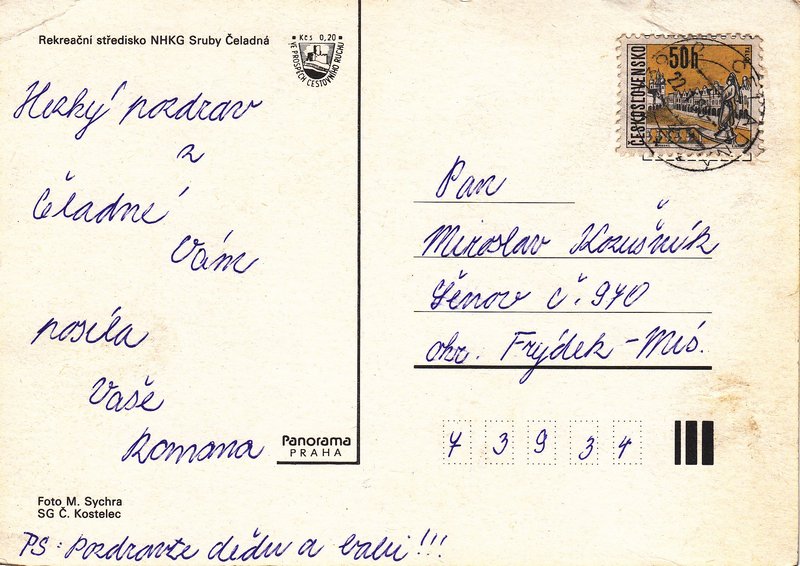 Rekreační středisko NHKG Sruby Čeladná
Kčs 0,20
VE PROSPĚCH CESTOVNÍHO RUCHU
ČESKOSLOVENSKO
50h
Hezký pozdrav
z
Čeladné
Vám
posíla
Vaše
Romana
Pan
Miroslav Kozušník
Šenov č. 970
okr. Frýdek-Mís.
7 3 9 3 4
Panorama
PRAHA
Foto M. Sychra
SG Č. Kostelec
PS: Pozdravte dědu a babi!!!